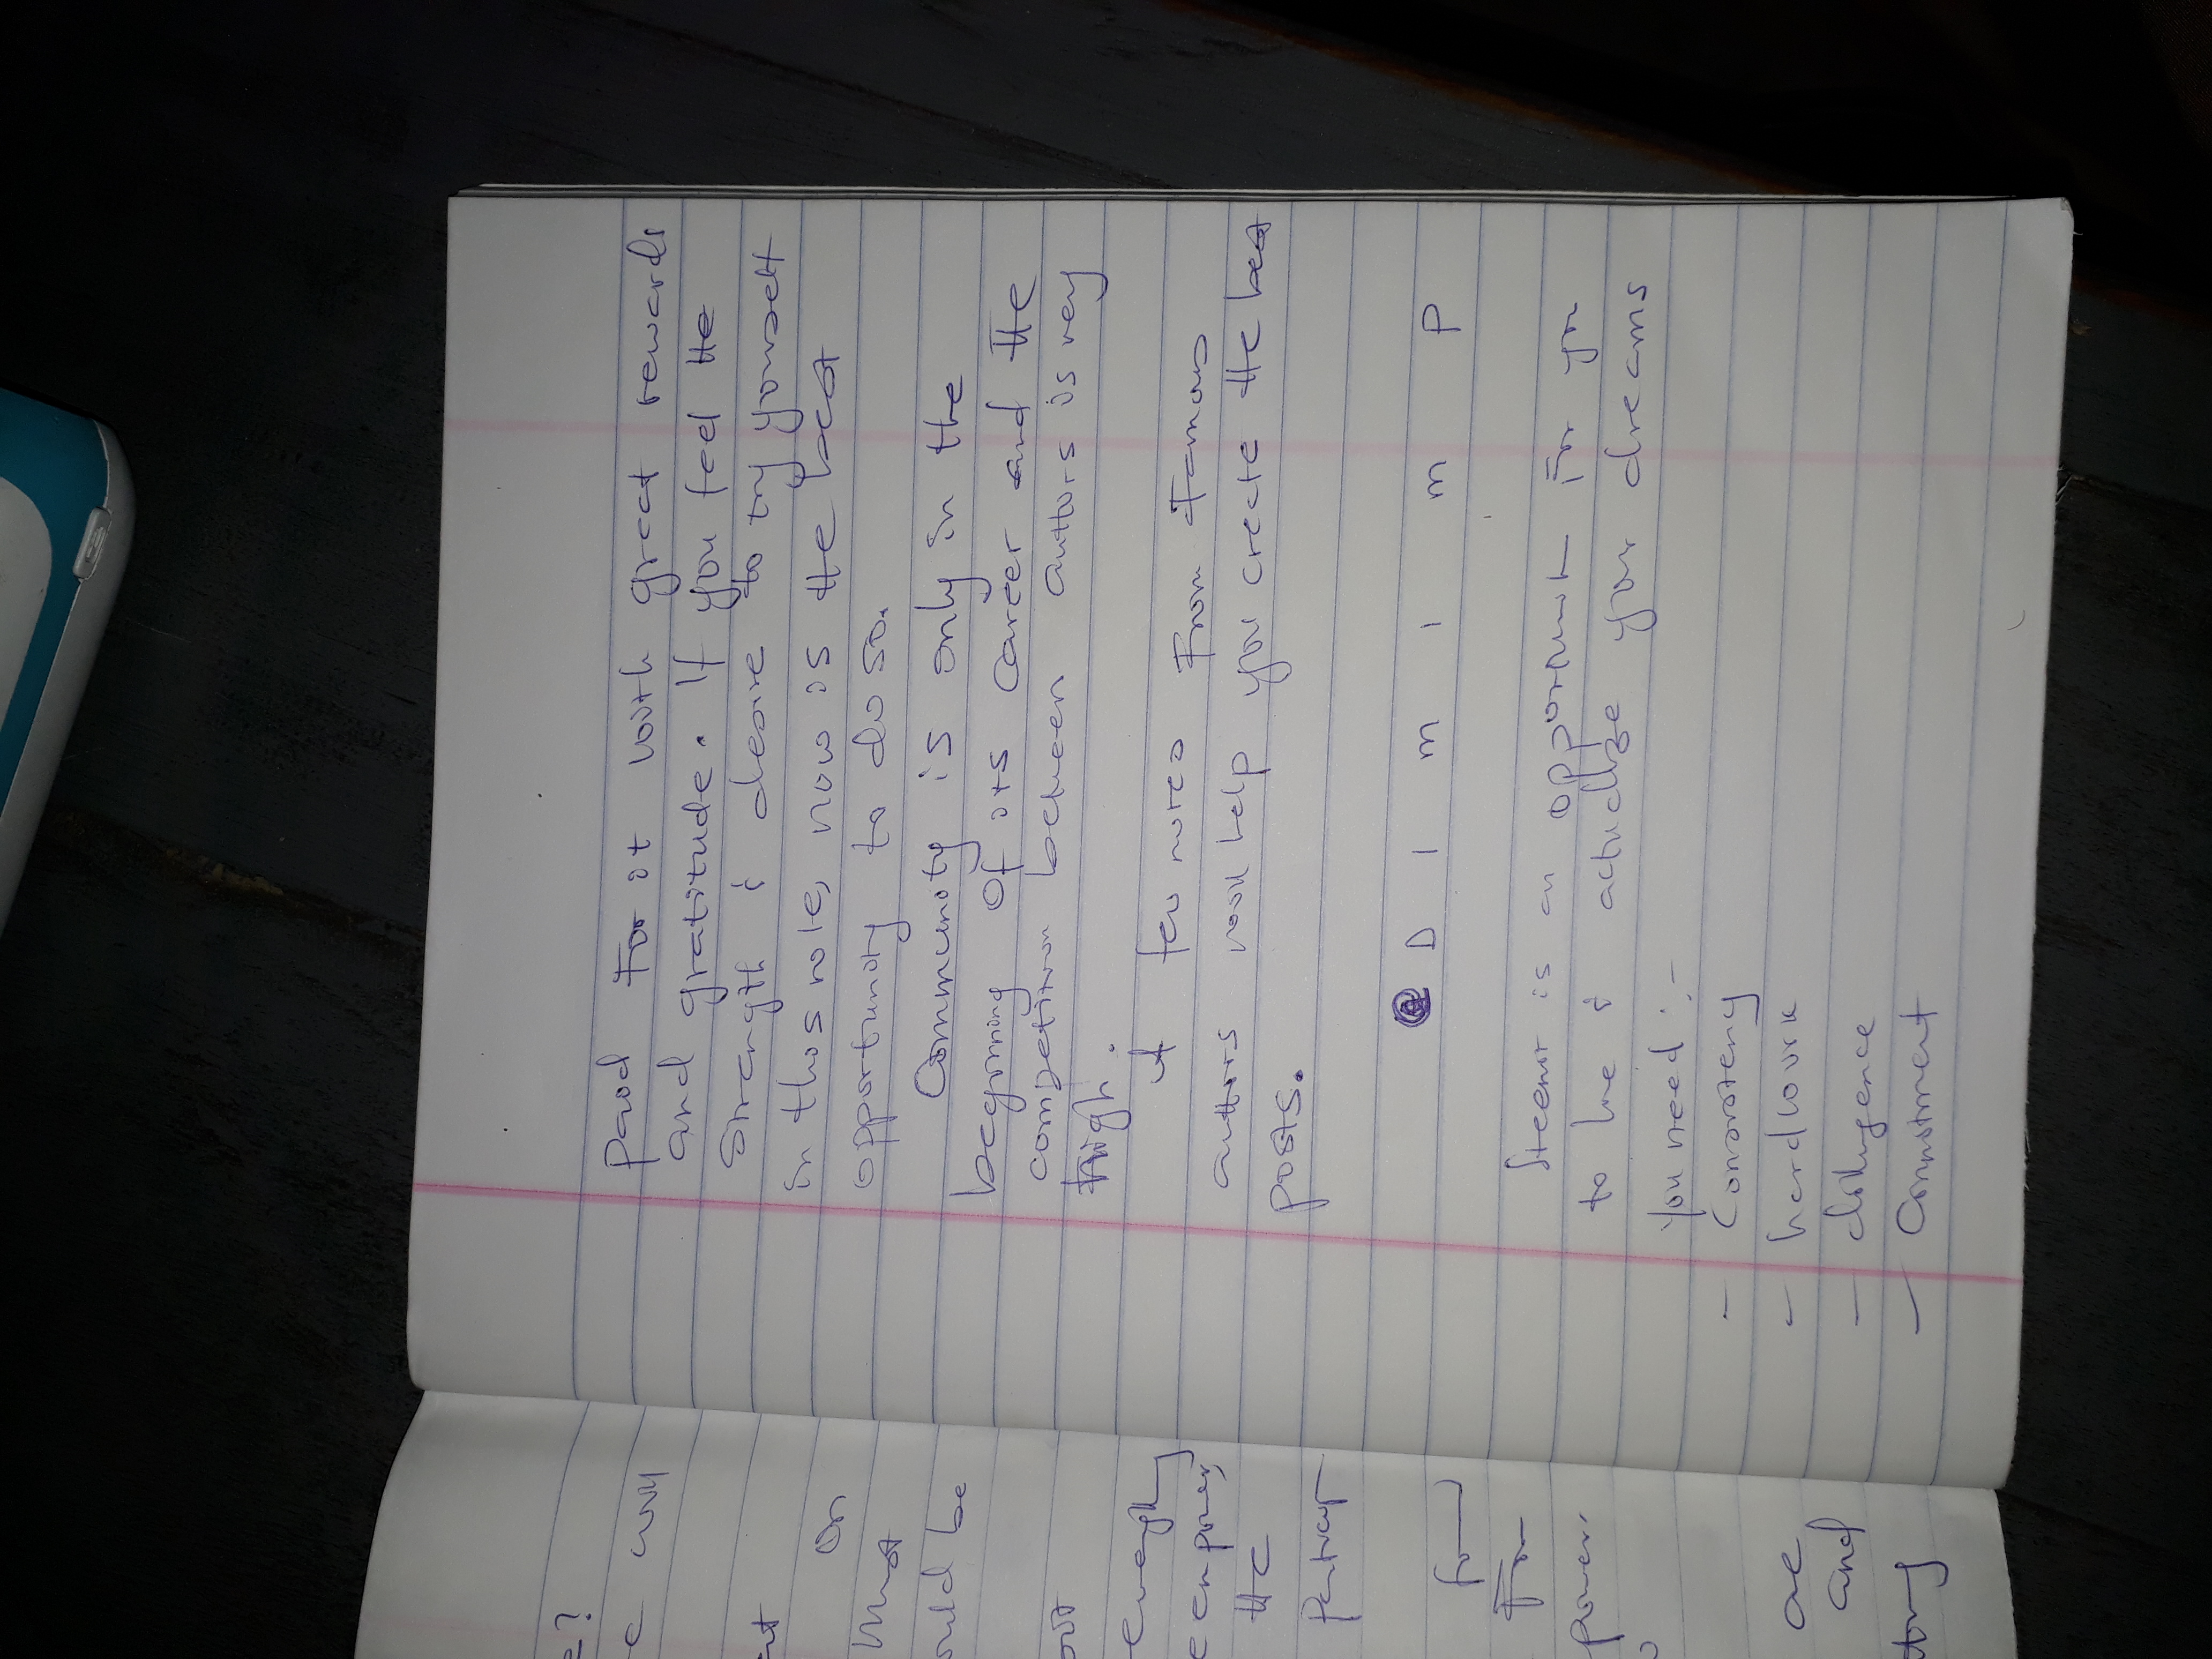 paid for it with great rewards
and gratitude. If you feel the
Strength & desire to try yourself
in this role, now is the best
opportunity to do so.
Community is only in the
beginning of its career and the
competition between authors is very
high.
A few notes from famous
authors will help you create the best
posts.
@ D I M I M P
Steemit is an opportunity for you
to live & actualize your dreams
You need :-
- Consistency
- hardwork
- diligence
- Commitment
e?
e will
nt
on
must
ould be
out
enough
the
for
power.
are
and